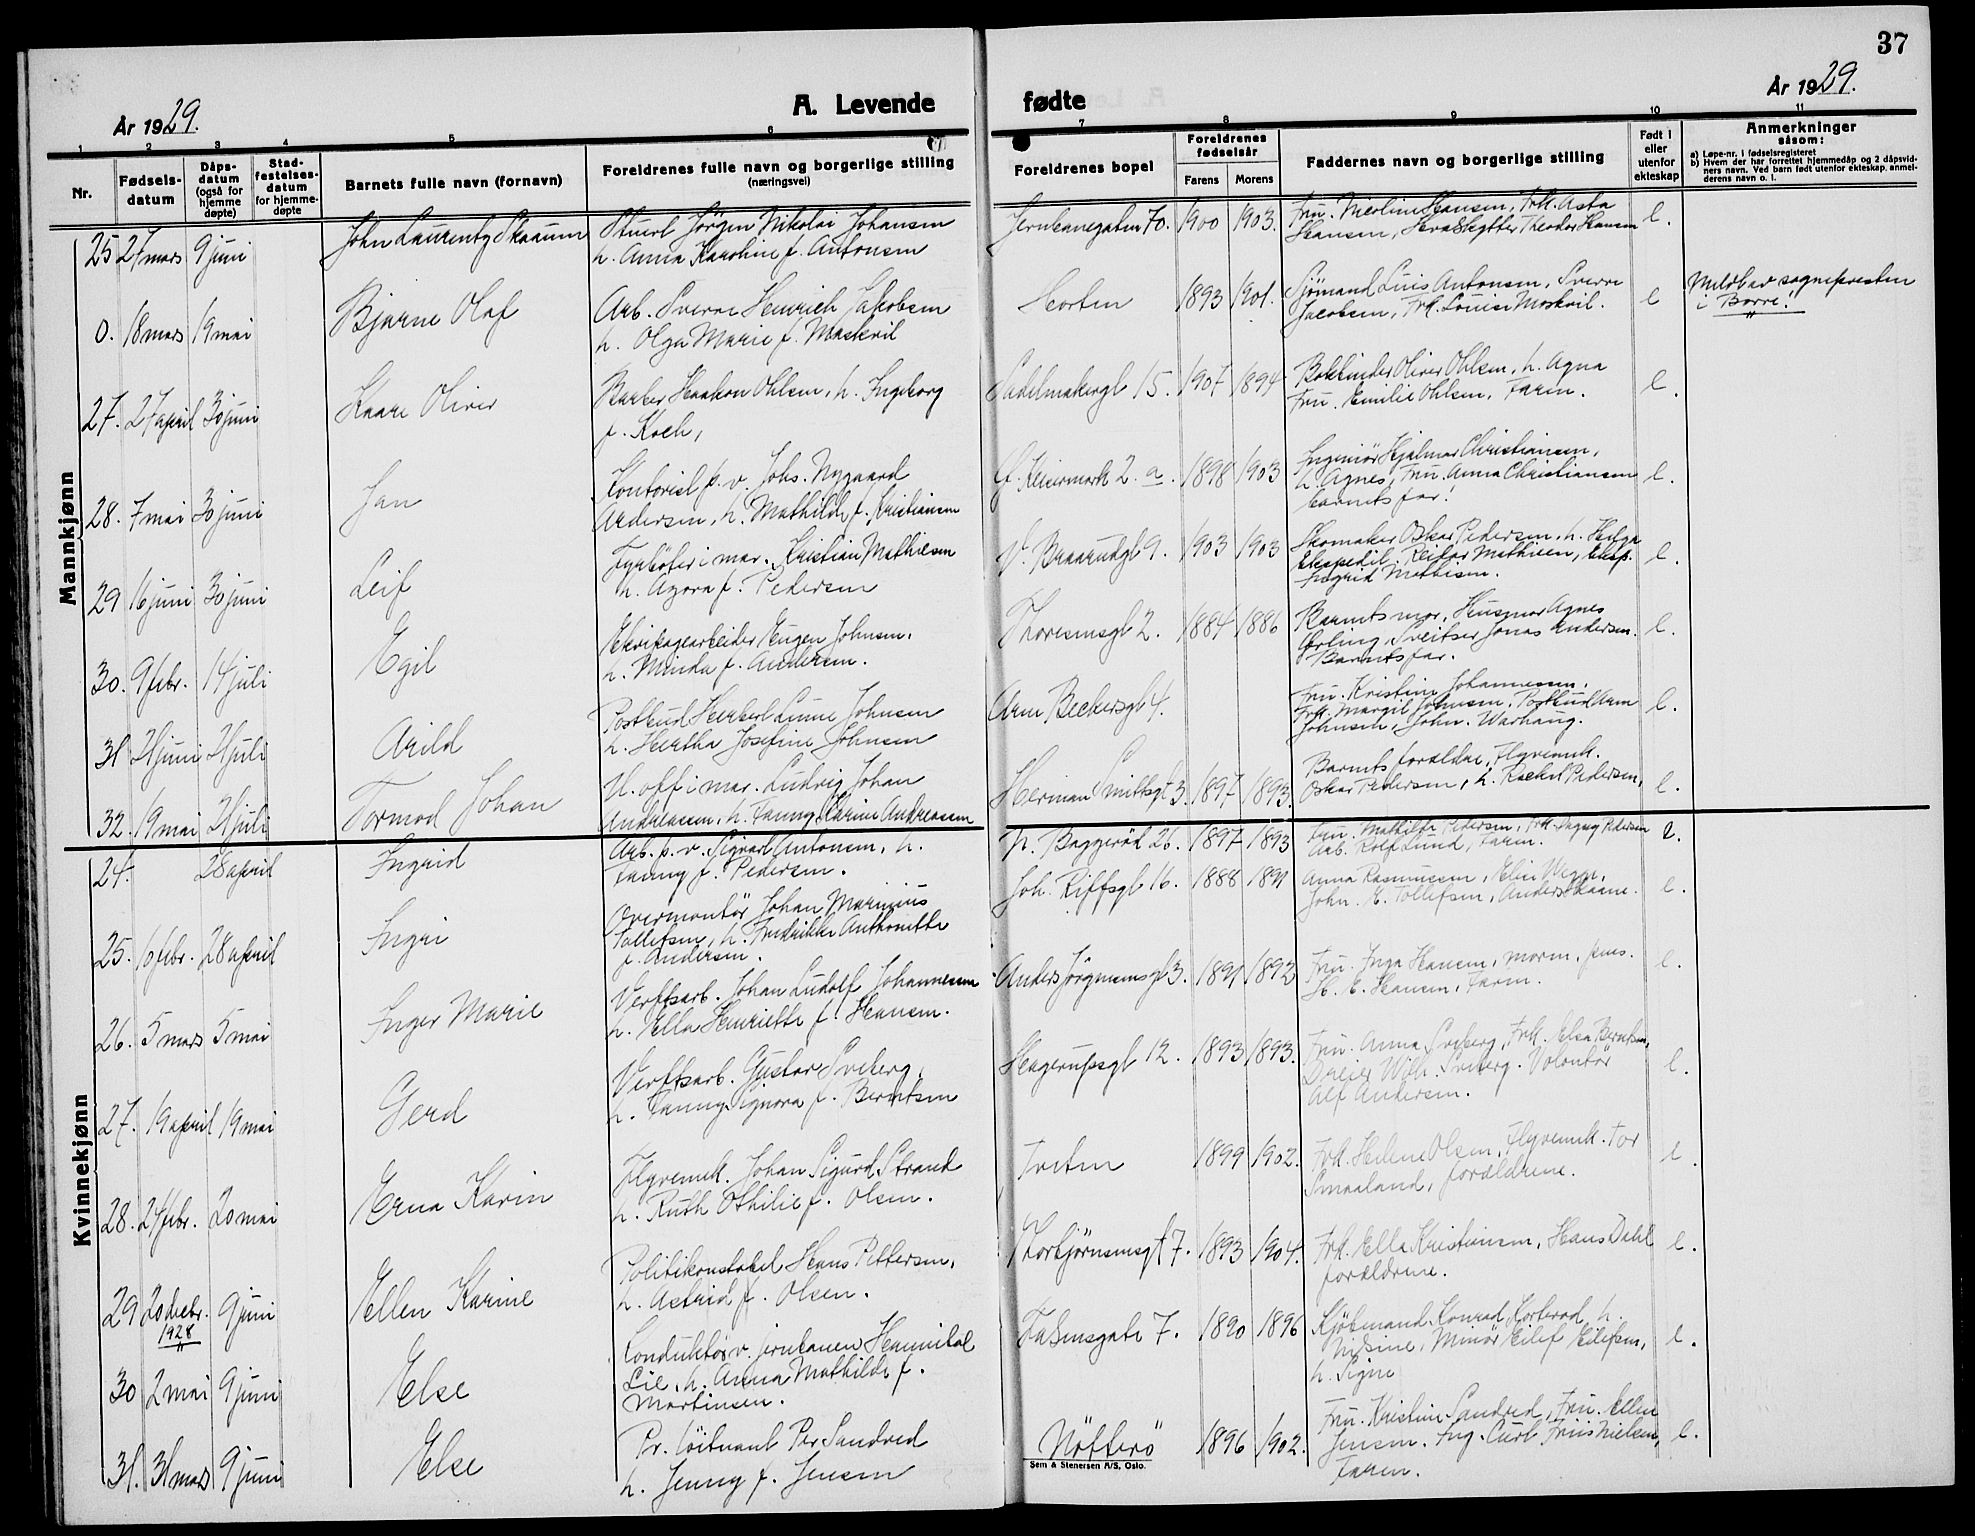 37
År 1929.
A. Levende
fødte
År 1929.
1 2 3 4 5 6 7 8 9 10 11
Nr.
Fødsels-
datum
Dåps-
datum
(også for
hjemme
døpte)
Stad-
festelses-
datum
for hjemme-
døpte
Barnets fulle navn (fornavn)
Foreldrenes fulle navn og borgerlige stilling
(næringsvei)
Foreldrenes bopel
Foreldrenes
fødselsår
Farens Morens
Faddernes navn og borgerlige stilling
Født i
eller
utenfor
ekteskap
Anmerkninger
såsom:
a) Løpe-nr. i fødselsregisteret
b) Hvem der har forrettet hjemmedåp og 2 dåpsvid-
ners navn. Ved barn født utenfor ekteskap, anmel-
derens navn o. l.
Mannkjønn
25 27 mars 9 juni John Laurentz Skaaum Stuert Jörgen Nikolai Johansen
h. Anna Karoline f. Antonsen
Jernbanegaten 70. 1900 1903. Fru. Nicoline Hansen, Frk. Asta
Hansen, Theodor Hansen e.
0. 18 mars 19 mai Bjarne Olaf Arb. Sverre Henrich Jakobsen
h. Olga Marie f. Maskvil
Horten 1893 1901. Sjömand Luis Antonsen, Sverre
Jacobsen, Frk. Louise Moskvil. e
Meldt av sognepresten
i Borre!
27. 27 april 30 juni Kaare Oliver Barber Haakon Ohlsen, h. Ingeborg
f. Koch,
Sadelmakergt 15. 1907 1894 Bokbinder Oliver Ohlsen, h. Agna
Fru. Emilie Ohlsen, Faren. e.
28. 7 mai 30 juni Jan Kontorist p. v. Johs. Nygaard
Andersen, h. Mathilde f. Kristiansen
2. a. 1898 1903 Ingeniör Hjalmar Christiansen,
h. Agnes, Fru. Anna Christiansen
barnets far! e.
29 16 juni 30 juni Leif Fyrböter i mar. Kristian Mathisen
h. Agora f. Pedersen
V. Braarudgt 9. 1903 1903 Skomaker Oskar Pedersen, h. Helga
Ekspedit. Reidar Mathisen, Eksp.
Ingrid Mathisen. e.
30. 9 febr. 14 juli Egil Ekvipagearbeider Eugen Johnsen.
h. Minda f. Andersen.
Thoresensgt 2. 1884 1886 Barnets mor, Husmor Agnes
Erling, Sveitser Jonas Andersen.
Barnets far. e.
31 21 juni 21 juli Arild Postbud Herbert Lune Johnsen
h. Hertha Josefine Johnsen
Arne Beckersgt 4. Fru. Kristine Johannessen,
Frk. Margit Johnsen, Postbud Arne
Johnsen, John. Warhaug. e.
32. 19 mai 21 juli Tormod Johan U. off i mar. Ludvig Johan
Andreassen, h. Fanny Karine Andreassen
Herman Smithsgt 3. 1897 1893. Barnets forældre, Flyvemek.
Oskar Pedersen, h. Rachel Pedersen, e.
Kvinnekjønn
24. 28 april Ingrid Arb. p. v. Sigvart Antonsen, h.
Fanny f. Pedersen.
N. Baggeröd 26. 1897 1893 Fru. Mathilde Pedersen, Frk. Dagny Pedersen
Arb. Rolf Lund, Faren. e.
25. 16 febr. 28 april Ingri Overmontör Johan Marinius
Tollefsen, h. Fredrikke Anthonette
f. Andersen.
Joh. Riffsgt 16. 1888 1891 Anna Rasmussen, Elin Wegn,
John. E. Tollefsen, Anders Skaane. e.
26. 5 mars 5 mai Inger Marie Verftsarb. Johan Ludolf Johannessen
h. Ella Henriette f. Hansen.
Anders Jörgensensgt 3. 1891 1892 Fru. Inga Hansen, morm. pens.
H. E. Hansen, Faren. e.
27. 19 april 19 mai Gerd Verftsarb. Gustav Sveberg,
h. Fanny Signora f. Berntsen
Hagerupsgt 12. 1893 1893. Fru. Anna Sveberg, Frk. Elsa Berntsen,
Dreier Wilh. Sveberg. Volontör
Alf Andersen. e.
28. 24 febr. 20 mai Erna Karin Flyvemek. Johan Sigurd Strand
h. Ruth Othilie f. Olsen.
Tveten 1899 1902. Frk. Helene Olsen, Flyvemek. Tor
Smaaland, forældrene. e.
29 20 decbr.
1928 9 juni Ellen Karine Politikonstabel Hans Pettersen,
h. Astrid f. Olsen.
Thorbjörnsensgt 7. 1893 1904. Frk. Ella Kristiansen, Hans Dahl
forældrene. e.
30 2 mai 9 juni Else Konduktör v. jernbanen Hannibal
Lie, h. Anna Mathilde f.
Martinsen.
Falsensgate 7. 1890 1896 Kjöbmand Konrad Korterød, h.
Nisine, Minör Eilef Eilefsen,
h. Signe e.
31. 31 mars 9 juni Else Pr. löitnant Per Sandved
h. Jenny f. Jensen
Nötterö 1896 1902. Fru. Kristine Sandved, Fru. Ellen
Jensen. Ing. Curt Friis Nielsen,
Faren. e.
Sem & Stenersen A/S, Oslo.